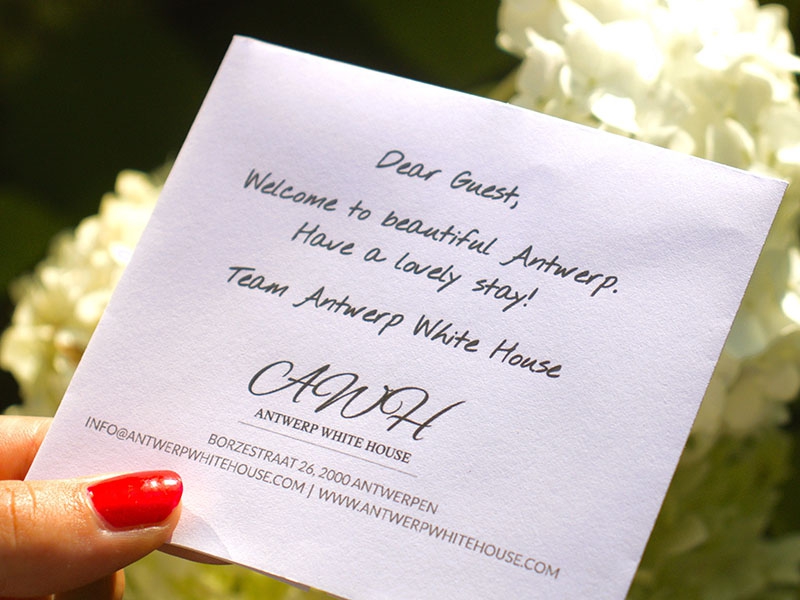 Dear Guest,
Welcome to beautiful Antwerp.
Have a lovely stay!
Team Antwerp White House
AWH
ANTWERP WHITE HOUSE
BORZESTRAAT 26, 2000 ANTWERPEN
INFO@ANTWERPWHITEHOUSE.COM | WWW.ANTWERPWHITEHOUSE.COM